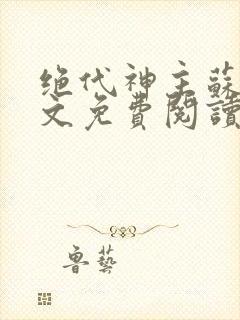 绝代神主蘇
文免費閱讀
鲁藝